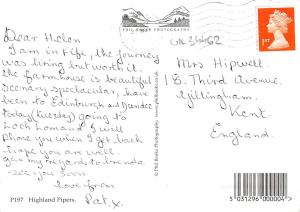 Dear Helen
I am in Fife, the journey
was tiring but worth it.
the farmhouse is beautiful
scenary spectacular, have
been to Edinburgh and Dundee
today (tuesday) going to
Loch Lomand I will
phone you when I get back
hope you are well.
give my regards to brenda.
see you soon
love from
Pat x
P197 Highland Pipers.
PHIL BANKS PHOTOGRAPHY
© Phil Banks Photography
1st
Mrs Hipwell.
18. Third Avenue.
Gillingham.
Kent.
England.
5 031296 000004